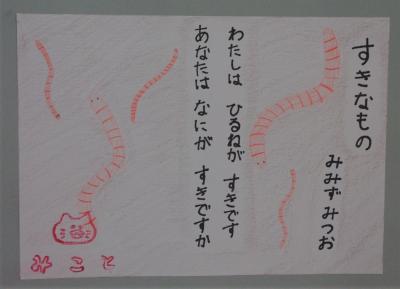 すきなもの
みみずみつお
わたしは ひるねが すきです
あなたは なにが すきですか
みこと